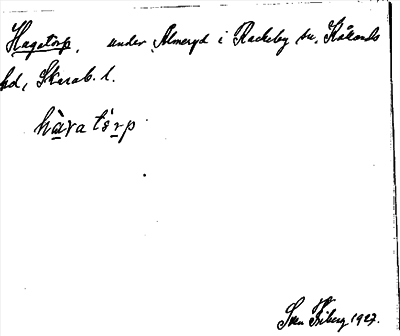 Hagatorp, under Almeryd i Rackeby sn, Kålands
hd, Skarab. l.
hàɤa tårp
Sven Friberg 1927.